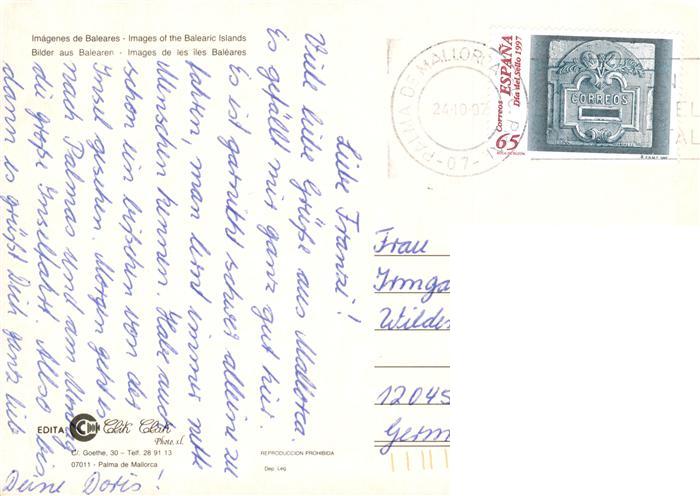 Imágenes de Baleares - Images of the Balearic Islands
Bilder aus Balearen - Images de les îles Baléares
Liebe Franzi!
Viele liebe Grüße aus Mallorca.
Es gefällt mir ganz gut hier.
Es ist garnicht schwer alleine zu
fahren, man lernt immer nette
Menschen kennen. Habe auch
schon ein bißchen von der
Insel gesehen. Morgen geht es
nach Palmas und am Montag
die große Inselfahrt. Also bis
dann es grüßt Dich ganz lieb
Deine Doris!
EDITA
Clik Clak
Photo, s.l.
C/. Goethe, 30 - Telf. 28 91 13
07011 - Palma de Mallorca
REPRODUCCION PROHIBIDA
Dep. Leg
PALMA DE MALLORCA
24-10-97
-07-
Correos ESPAÑA
Día del Sello 1997
65
CORREOS
Frau
Irmga
Wilde
12045
Germ